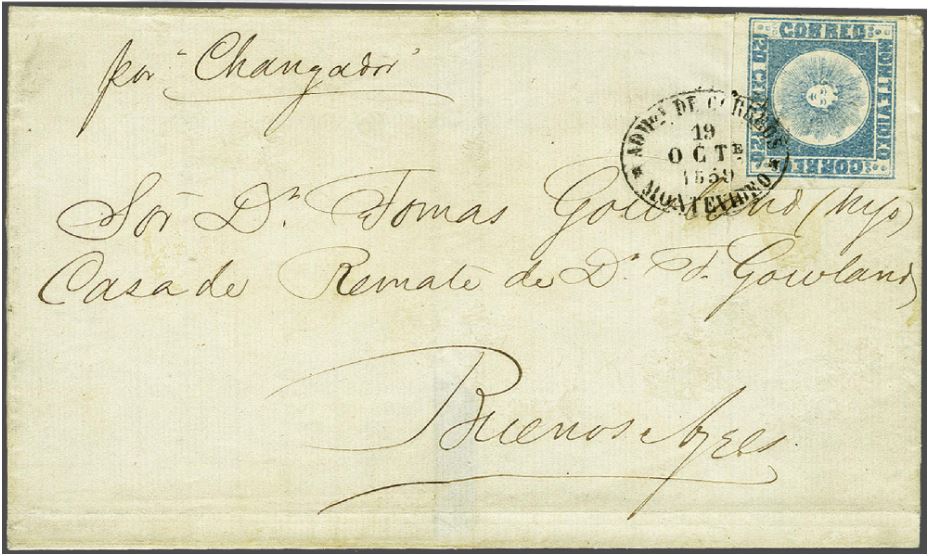 por "Changador"
CORREO
120 CENTs
MONTEVIDEO
CORREO
ADMon DE CORREOS
19
OCTE
1859
MONTEVIDEO
Sor Dn Tomas Gowland (hijo)
Casa de Remate de Dn T. Gowland
Buenos Ayres